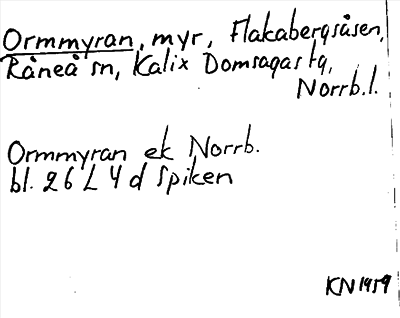 Ormmyran, myr, Flakabergsåsen,
Råneå sn, Kalix Domsagas tg,
Norrb.l.
Ormmyran ek Norrb.
bl. 26 L 4 d Spiken
KN 1959